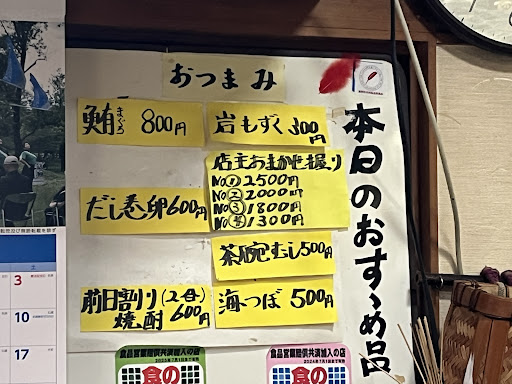 本日のおすゝめ品
おつまみ
鮪 800円
まぐろ
岩もずく 300円
店主おまかせ握り
No① 2500円
No② 2000円
No③ 1800円
No④ 1300円
だし巻卵 600円
茶腕むし 500円
前日割り(2合)
焼酎 600円
海つぼ 500円
食品営業賠償共済加入の店
食の
食品営業賠償共済加入の店
食の
3
10
17